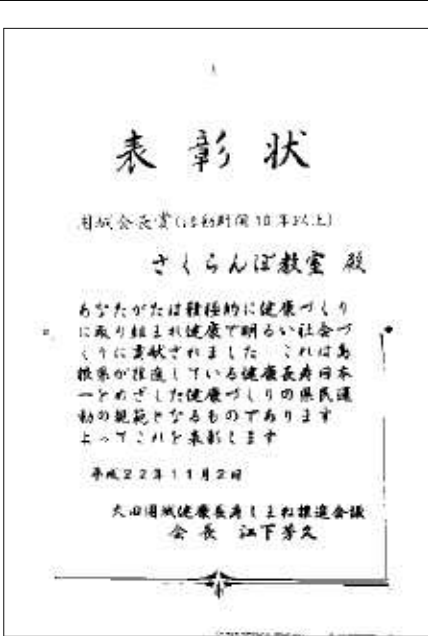 表彰状
圏域会長賞(活動期間10年以上)
さくらんぼ教室 殿
あなたがたは積極的に健康づくり
に取り組まれ健康で明るい社会づ
くりに貢献されました これは島
根県が推進している健康長寿日本
一をめざした健康づくりの県民運
動の規範となるものであります
よってこれを表彰します
平成22年11月2日
大田圏域健康長寿しまね推進会議
会長 江下芳久